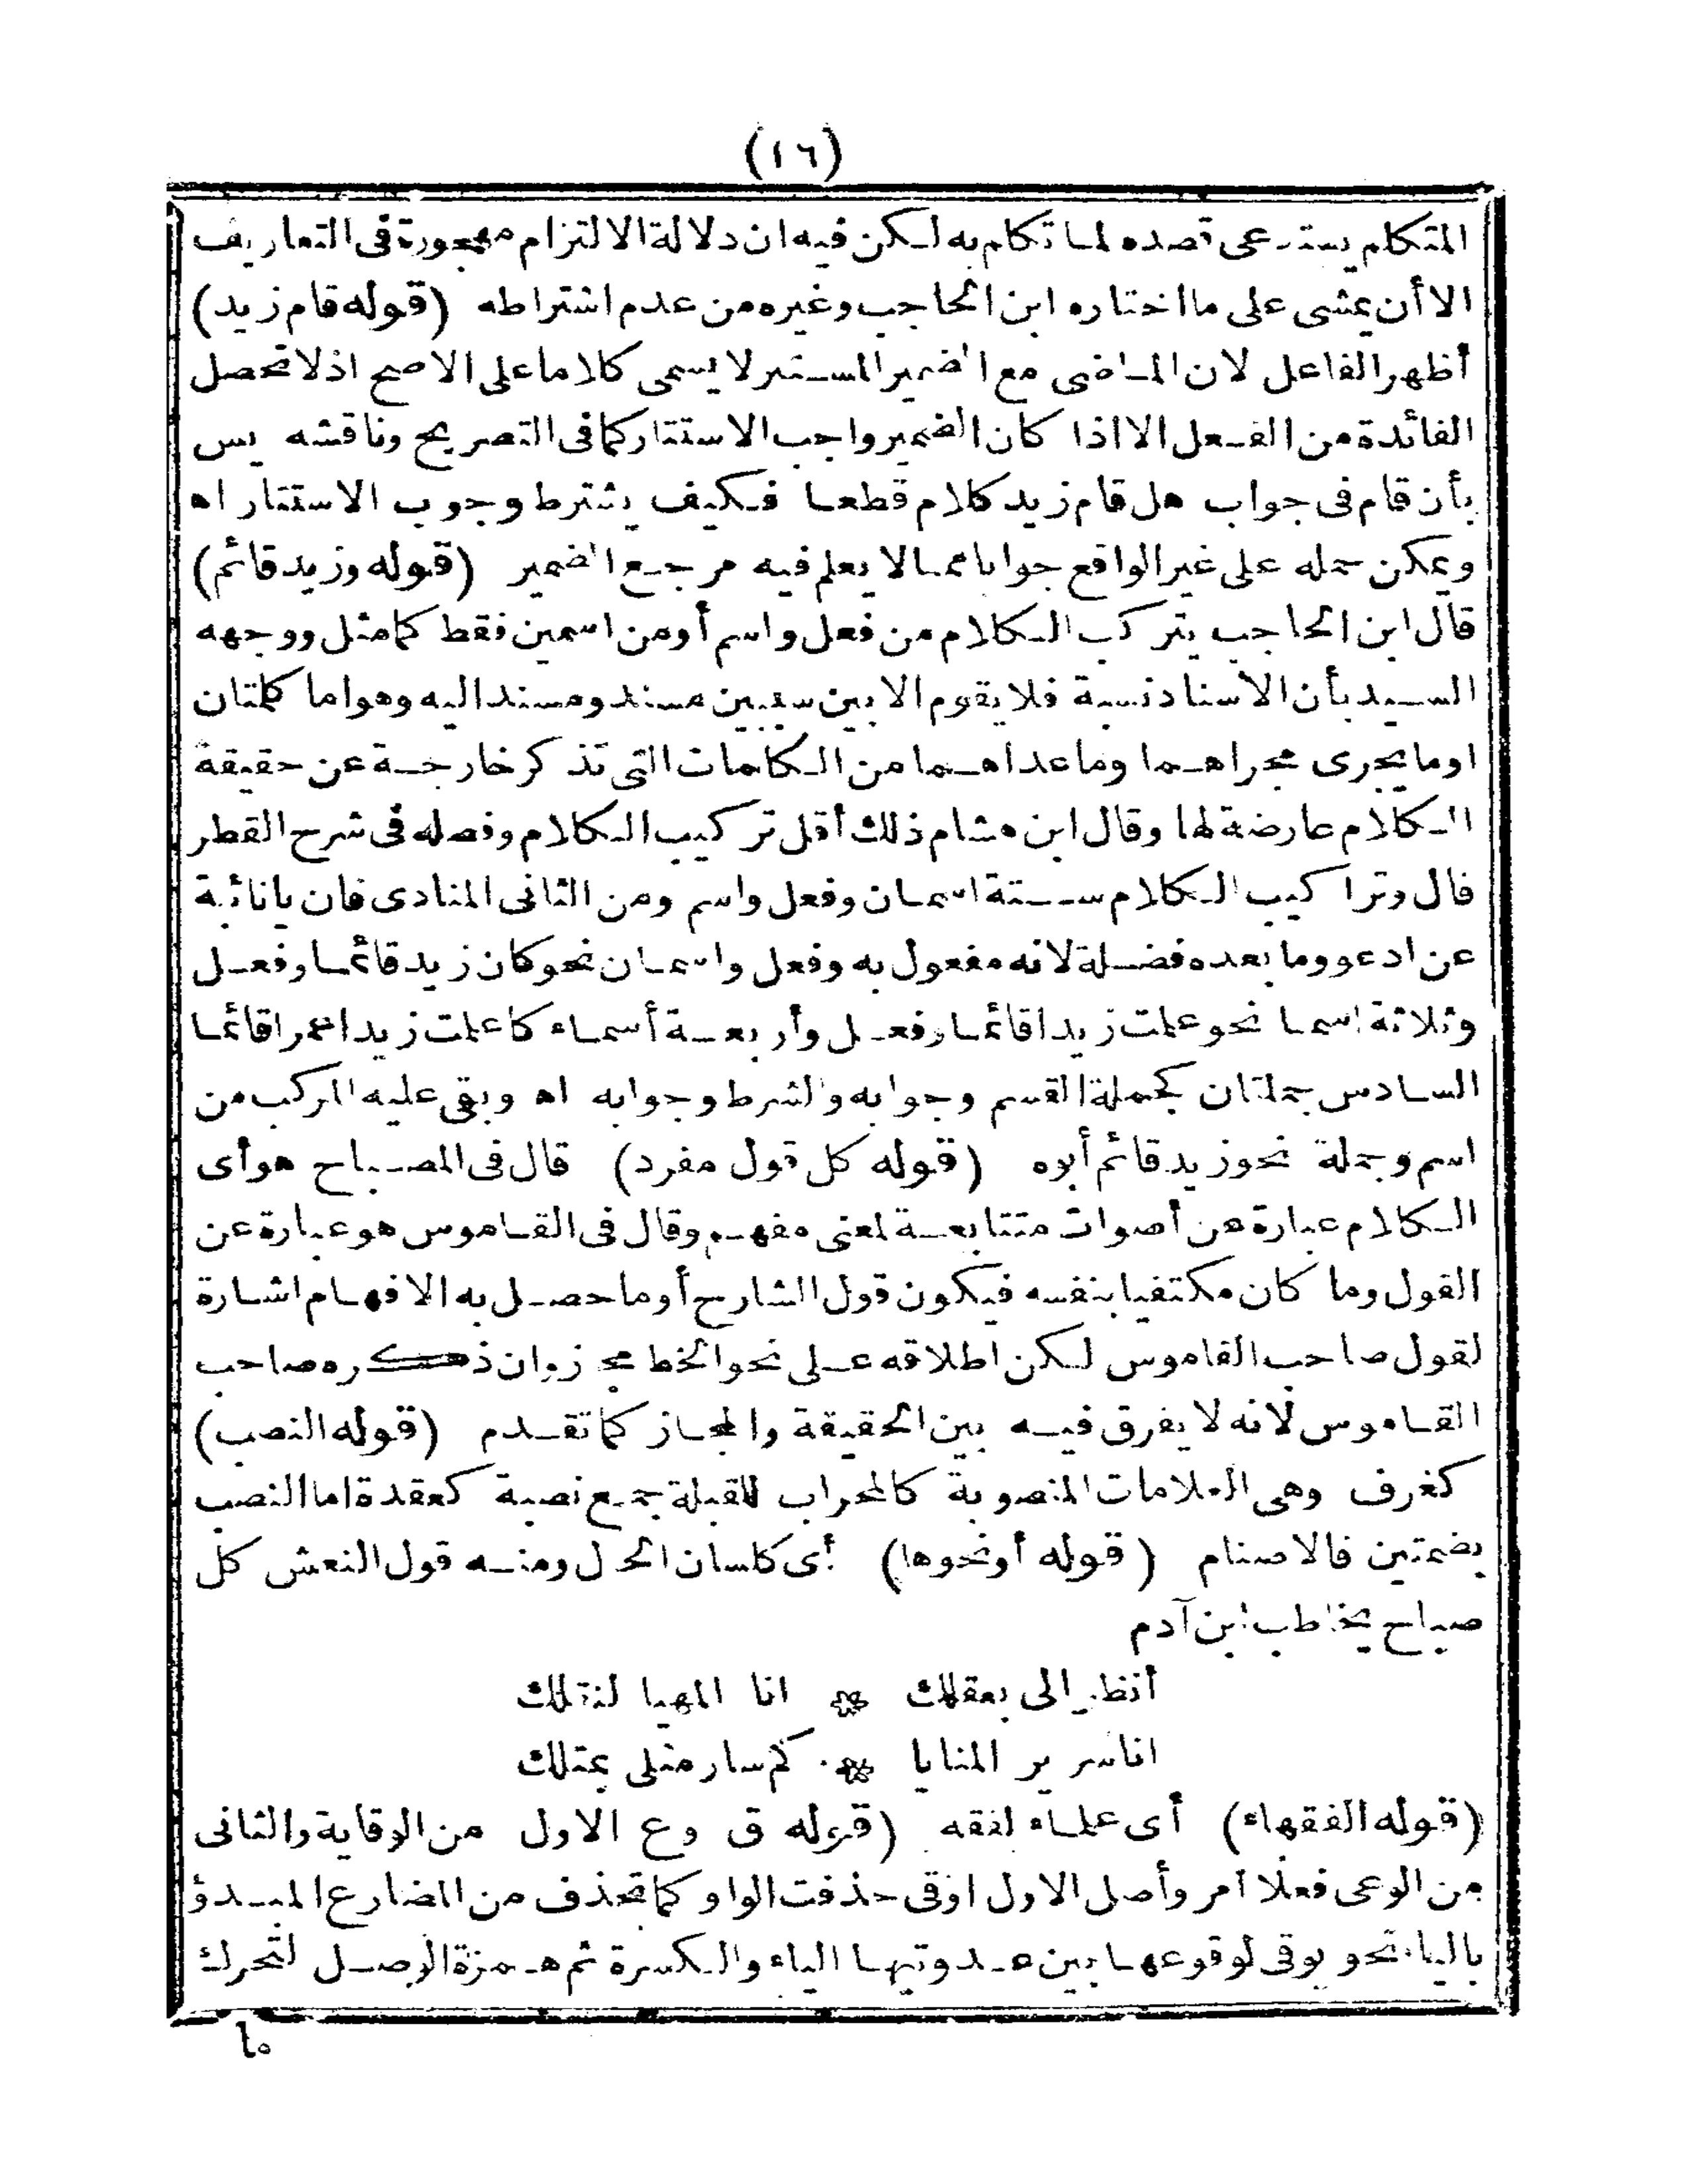 (١٦)
المتكلم يستدعى قصده لما تكلم به لكن فيه ان دلالة الالتزام مهجورة فى التعاريف
الا أن يمشى على ما اختاره ابن الحاجب وغيره من عدم اشتراطه (قوله قام زيد)
أظهر الفاعل لان الماضى مع الضمير المستتر لا يسمى كلاما على الاصح اذ لا تحصل
الفائدة من الفعل الا اذا كان الضمير واجب الاستتار كما فى التصريح وناقشه يس
بأن قام فى جواب هل قام زيد كلام قطعا فكيف يشترط وجوب الاستتار اه
ويمكن حمله على غير الواقع جوابا مما لا يعلم فيه مرجع الضمير (قوله وزيد قائم)
قال ابن الحاجب يتركب الكلام من فعل واسم أومن اسمين فقط كما مثل ووجهه
السيد بأن الاسناد نسبة فلا يقوم الا بين سببين مسند ومسند اليه وهو اما كلمتان
او ما يجرى مجراهما وما عداهما من الكلمات التى تذكر خارجة عن حقيقة
الكلام عارضة لها وقال ابن هشام ذلك أقل تركيب الكلام وفصله فى شرح القطر
فال وتراكيب الكلام ستة اسمان وفعل واسم ومن الثانى المنادى فان يا نائبة
عن ادعو وما بعده فضلة لانه مفعول به وفعل واسمان نحو كان زيد قائما وفعل
وثلاثة اسما نحو علمت زيدا قائما وفعل وأربعة أسماء كاعلمت زيدا عمرا قائما
السادس جملتان كجملة القسم وجوابه والشرط وجوابه اه وبقى عليه المركب من
اسم وجملة نحو زيد قائم أبوه (قوله كل قول مفرد) قال فى المصباح هو أى
الكلام عبارة عن أصوات متتابعة لمعنى مفهوم وقال فى القاموس هو عبارة عن
القول وما كان مكتفيا بنفسه فيكون قول الشارح أو ما حصل به الافهام اشارة
لقول صاحب القاموس لكن اطلاقه على نحو الخط مجاز وان ذكره صاحب
القاموس لانه لا يفرق فيه بين الحقيقة والمجاز كما تقدم (قوله النصب)
كغرف وهى العلامات المنصوبة كالمحراب للقبلة جمع نصبة كعقدة اما النصب
بضمتين فالاصنام (قوله أو نحوها) أى كلسان الحال ومنه قول النعش كل
صباح يخاطب ابن آدم
أنظر الى بعقلك * انا المهيا لنقلك
انا سرير المنايا * كم سار مثلى بمثلك
(قوله الفقهاء) أى علماء الفقه (قوله ق وع الاول من الوقاية والثانى
من الوعى فعلا امر وأصل الاول اوقى حذفت الواو كما تحذف من المضارع المبدؤ
بالياء نحو يوقى لوقوعها بين عدوتيها الياء والكسرة ثم همزة الوصل لتحرك